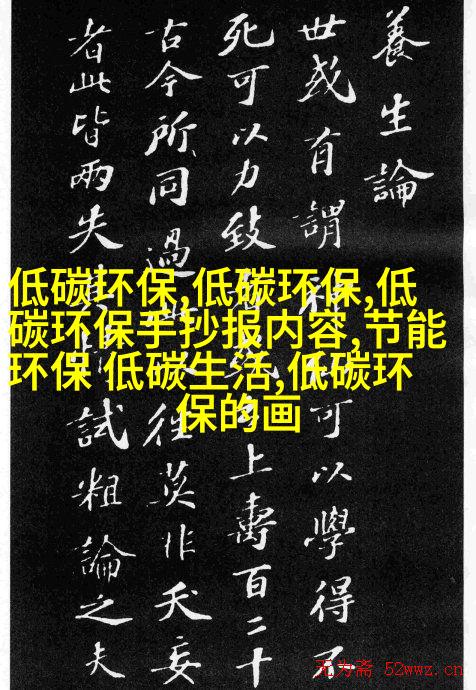 養生論
世或有謂可以學得不
死可以力致上壽百二十
古今所同過往莫非夭妄
者此皆兩失試粗論之夫
低碳环保,低碳环保,低
碳环保手抄报内容,节能
环保 低碳生活,低碳环
保的画
无为斋 52wwz.cn